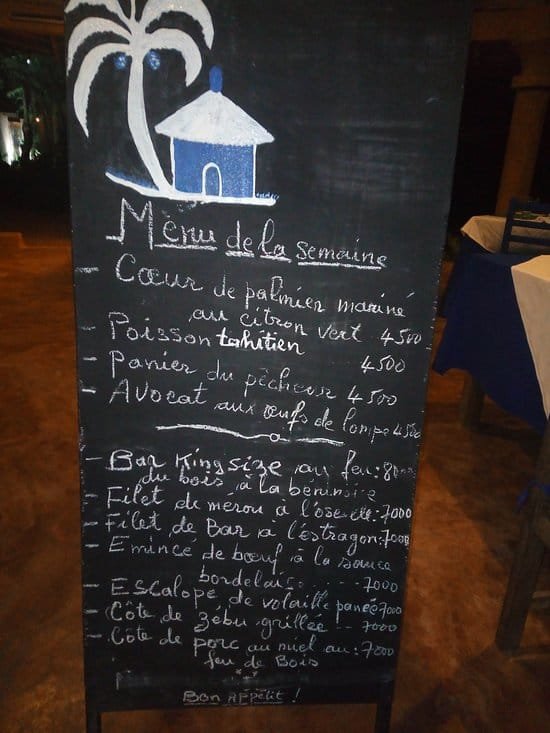 Mènu de la semaine
- Cœur de palmier mariné
au citron vert 4500
- Poisson tahitien 4500
- Panier du pêcheur 4500
- Avocat aux œufs de lompe 4500
- Bar King size au feu: 8000
du bois à la
- Filet de mérou à l'oseille: 7000
- Filet de Bar à l'estragon: 7000
- Emincé de bœuf à la sauce
bordelaise ---- 7000
- Escalope de volaille panée 7000
- Côte de zébu grillée !-- 7000
- Côte de porc au miel au: 7000
feu de Bois
Bon Appétit !